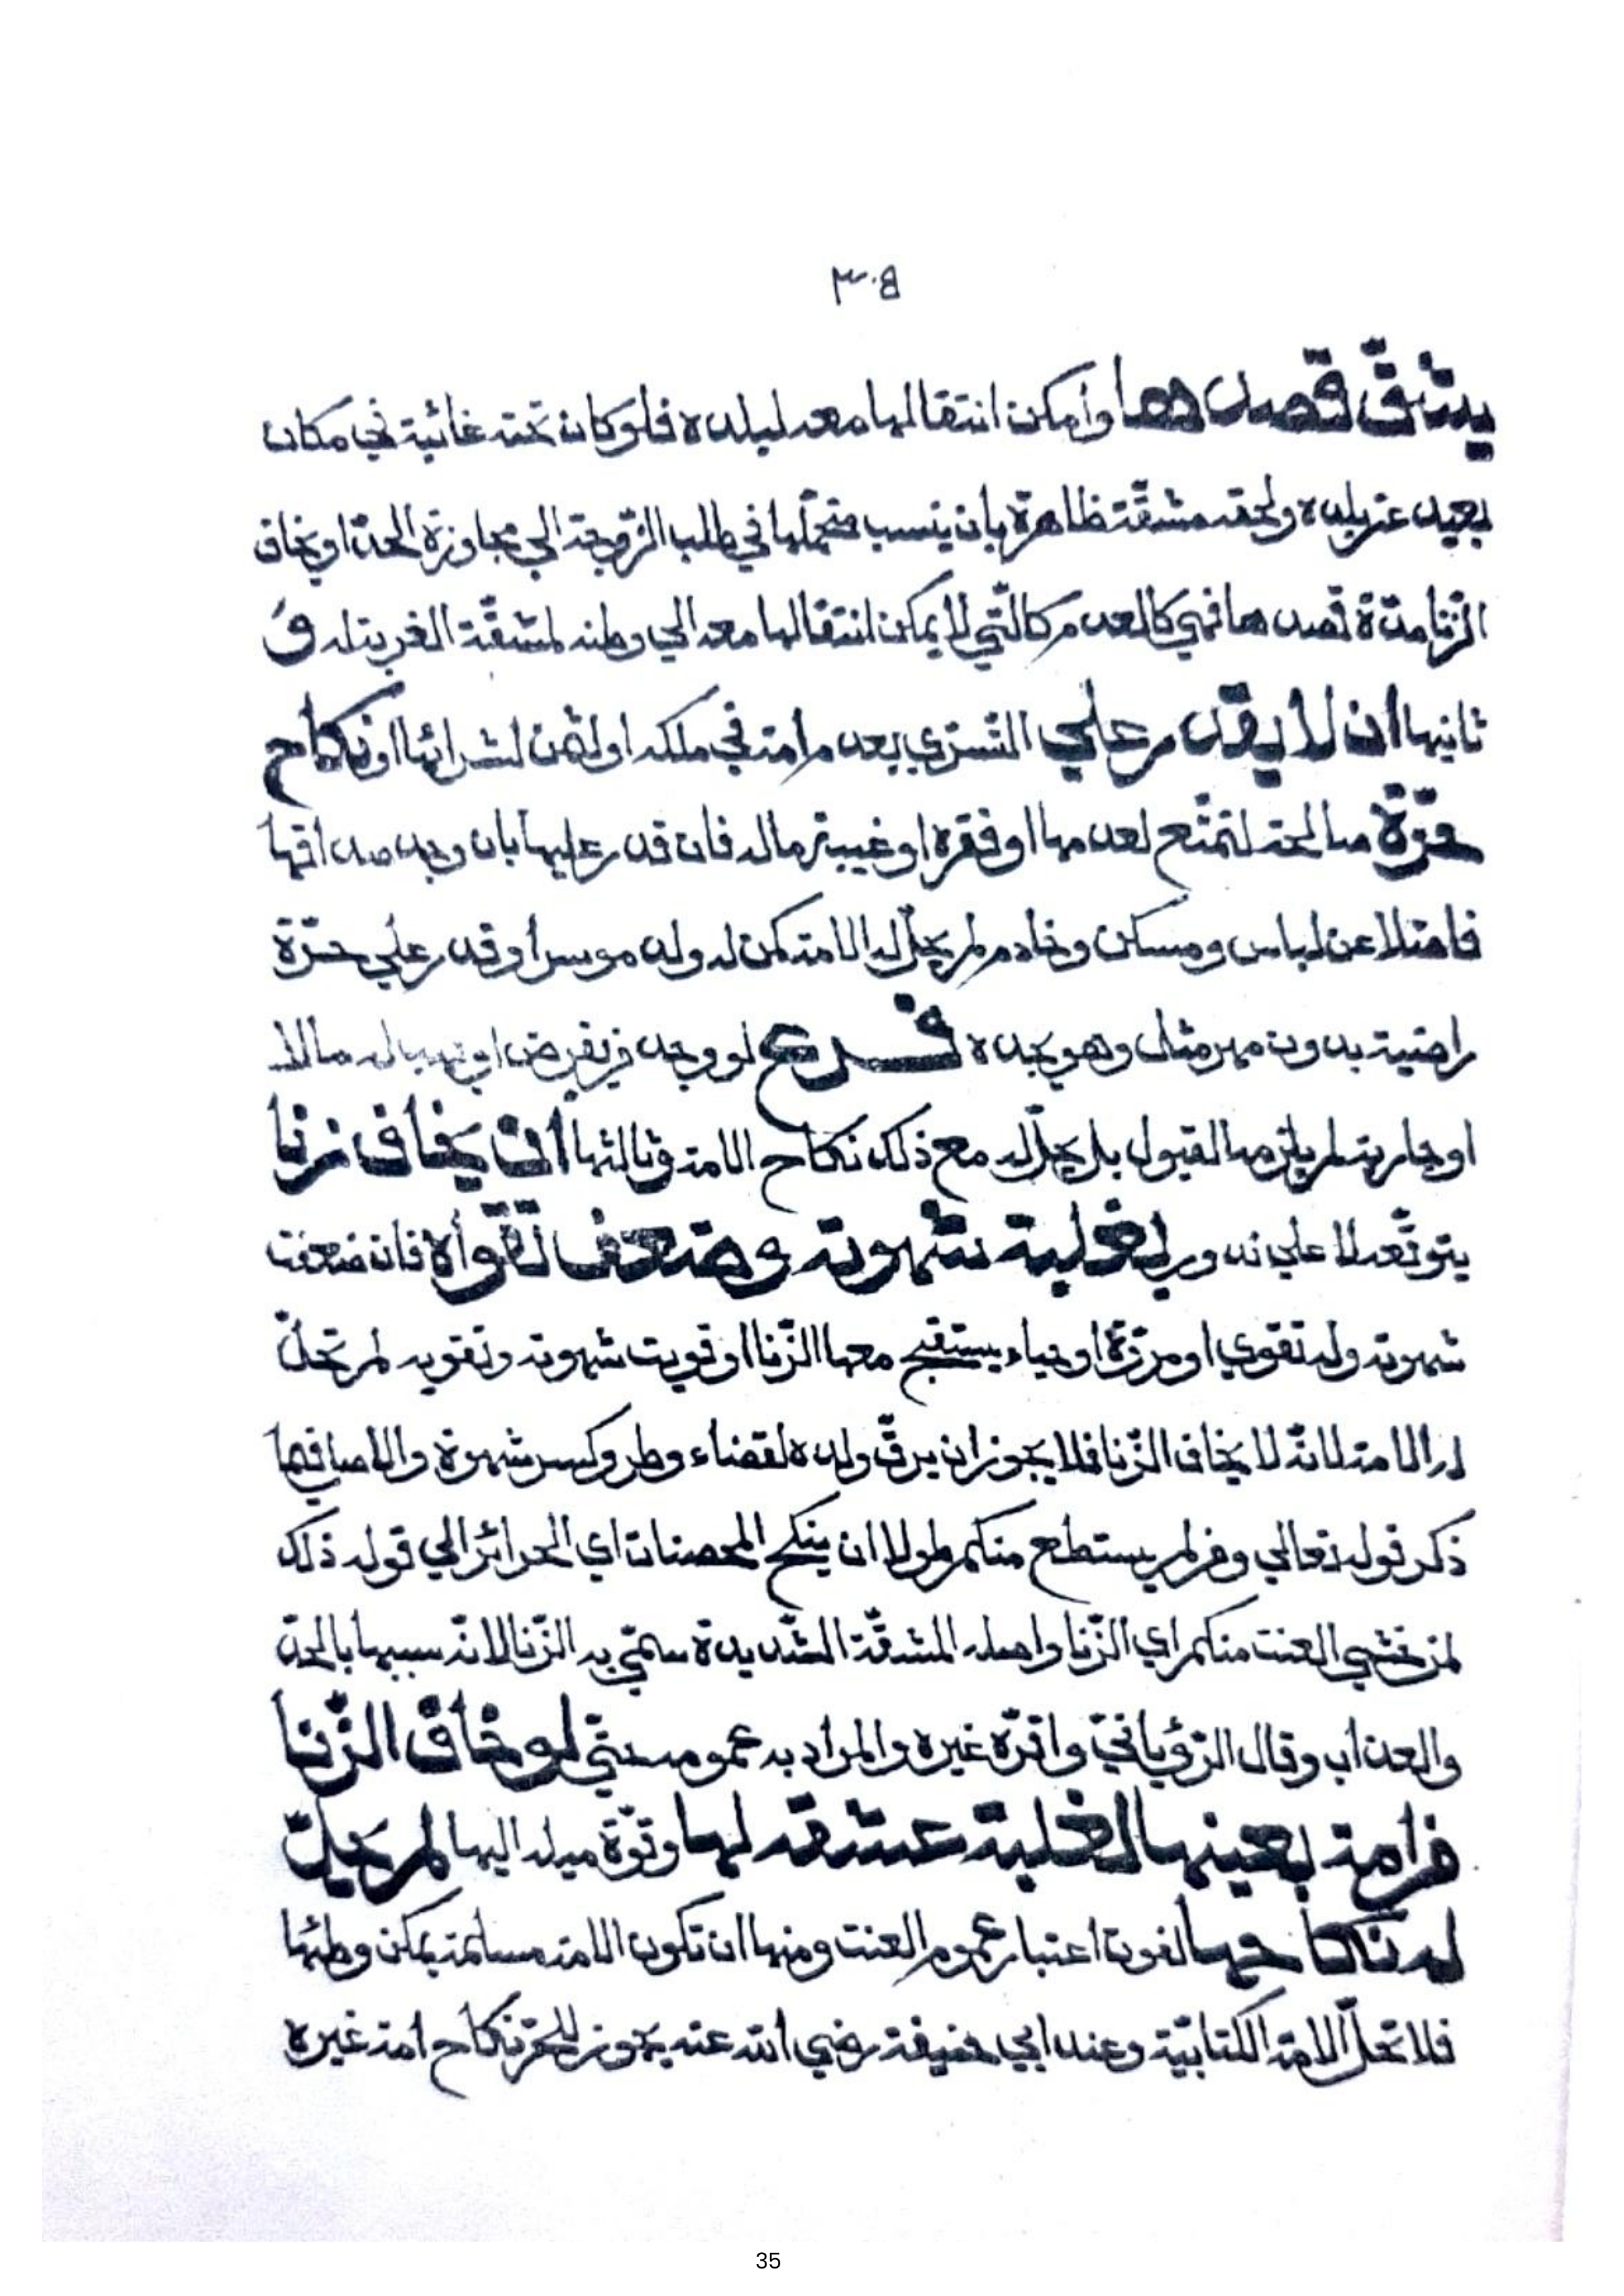 ٣٠٥
يشقّ قصدها وأمكن انتقالها معه لبلده فلو كان تحته غائبة في مكان
بعيد عن بلده ولحقه مشقّة ظاهرة بان ينسب متحمّلها في طلب الزّوجة الي مجاوزة الحدّ او يخاف
الزّنا مدّة قصدها فهي كالعدم كالّتي لا يمكن انتقالها معه الي وطنه لمشقّة الغربة له و
ثانيها ان لا يقدر علي التّسرّي بعدم امة في ملكه او لثمن لشرائها او نكاح
حرّة صالحة لتمتّع لعدمها او فقره او غيبة ماله فان قدر عليها بان وجد صداقها
فاضلا عن لباس ومسكن وخادم لم يحلّ له الامة كمن له ولد موسر أو قدر علي حرّة
راضية بدون مهر مثل وهو يجده فرع لو وجد من يقرض او يهب له مالا
او جارية لم يلزمه القبول بل يحلّ له مع ذلك نكاح الامة وثالثها ان يخاف زنا
يتوقّعه لا علي ندور لغلبة شهوته وضعف تقواه فان ضعفت
شهوته وله تقوي او مروّة او حياء يستقبح معها الزّنا او قويت شهوته وتقويه لم تحلّ
له الامة لانّه لا يخاف الزّنا فلا يجوز ان يرقّ ولده لقضاء وطر وكسر شهوة والاصل فيما
ذكر قوله تعالي ومن لم يستطع منكم طولا ان ينكح المحصنات اي الحرائر الي قوله ذلك
لمن خشي العنت منكم اي الزّنا واصله المشقّة الشّديدة سمّي به الزّنا لانّه سببها بالحدّ
والعذاب وقال الرّؤيانيّ واقرّه غيره والمراد به عمومه حتّي لو خاف الزّنا
من امة بعينها لغلبة عشقه لها وقوّة ميله اليها لم يحلّ
له نكاحها لفوت اعتبار عموم العنت ومنها ان تكون الامة مسلمة يمكن وطئها
فلا تحلّ الامة الكتابيّة وعند ابي حنيفة رضي الله عنه يجوز للحرّ نكاح امة غيره
35